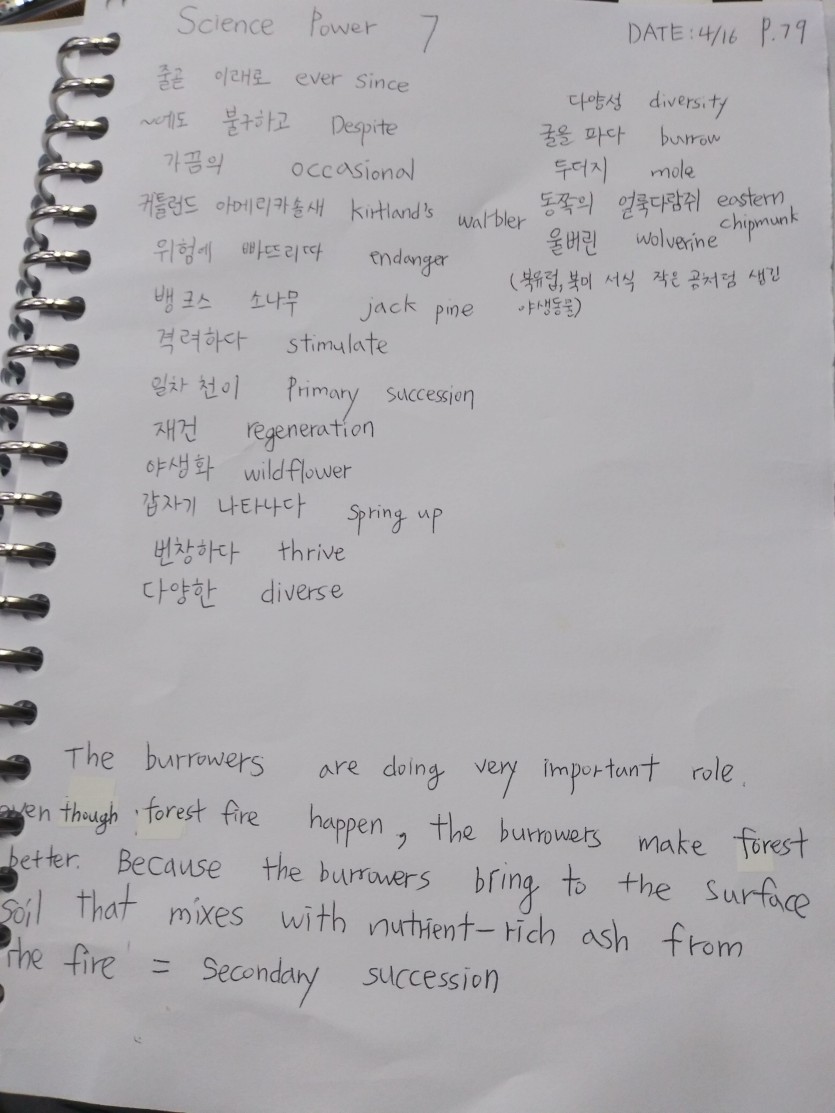 Science Power 7
DATE: 4/16 P.79
줄곧 이래로 ever since
~에도 불구하고 Despite
가끔의 occasional
커틀런드 아메리카솔새 kirtland's warbler
위험에 빠뜨리따 endanger
뱅크스 소나무 jack pine
격려하다 stimulate
일차 천이 Primary succession
재건 regeneration
야생화 wildflower
갑자기 나타나다 Spring up
번창하다 thrive
다양한 diverse
다양성 diversity
굴을 파다 burrow
두더지 mole
동쪽의 얼룩다람쥐 eastern
chipmunk
울버린 wolverine
(북유럽, 북미 서식 작은 곰처럼 생긴
야생동물)
The burrowers are doing very important role.
even though forest fire happen, the burrowers make forest
better. Because the burrowers bring to the surface
soil that mixes with nutrient-rich ash from
the fire = Secondary succession